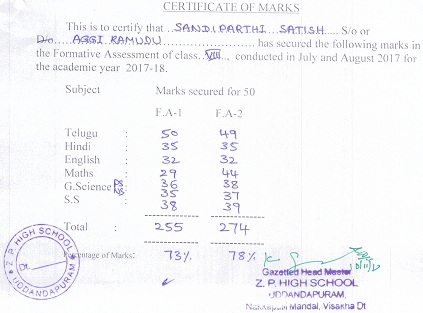 CERTIFICATE OF MARKS
This is to certify that ..SANDIPARTHI SATISH..... S/o or
D/o.....AGGI RAMUDU........................ has secured the following marks in
the Formative Assessment of class..VIII..., conducted in July and August 2017 for
the academic year 2017-18.
Subject Marks secured for 50
F.A-1 F.A-2
Telugu : 50 49
Hindi : 35 35
English : 32 32
Maths : 29 44
G.Science PS : 36 38
NS 35 37
S.S : 38 39
Total : 255 274
Percentage of Marks: 73% 78%
Gazetted Head Master
Z. P. HIGH SCHOOL
UDDANDAPURAM,
Mandal, Visakha Dt
Z. P. HIGH SCHOOL
Dt.
UDDANDAPURAM